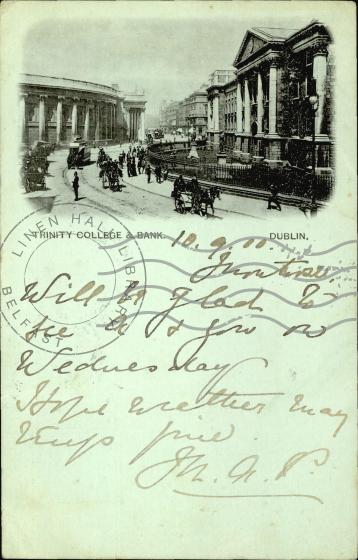 TRINITY COLLEGE & BANK. DUBLIN.
LINEN HALL LIBRARY
BELFAST
10.9.00.
Montrose
Will be glad to
see & you on
Wednesday
Hope weather may
keep fine.